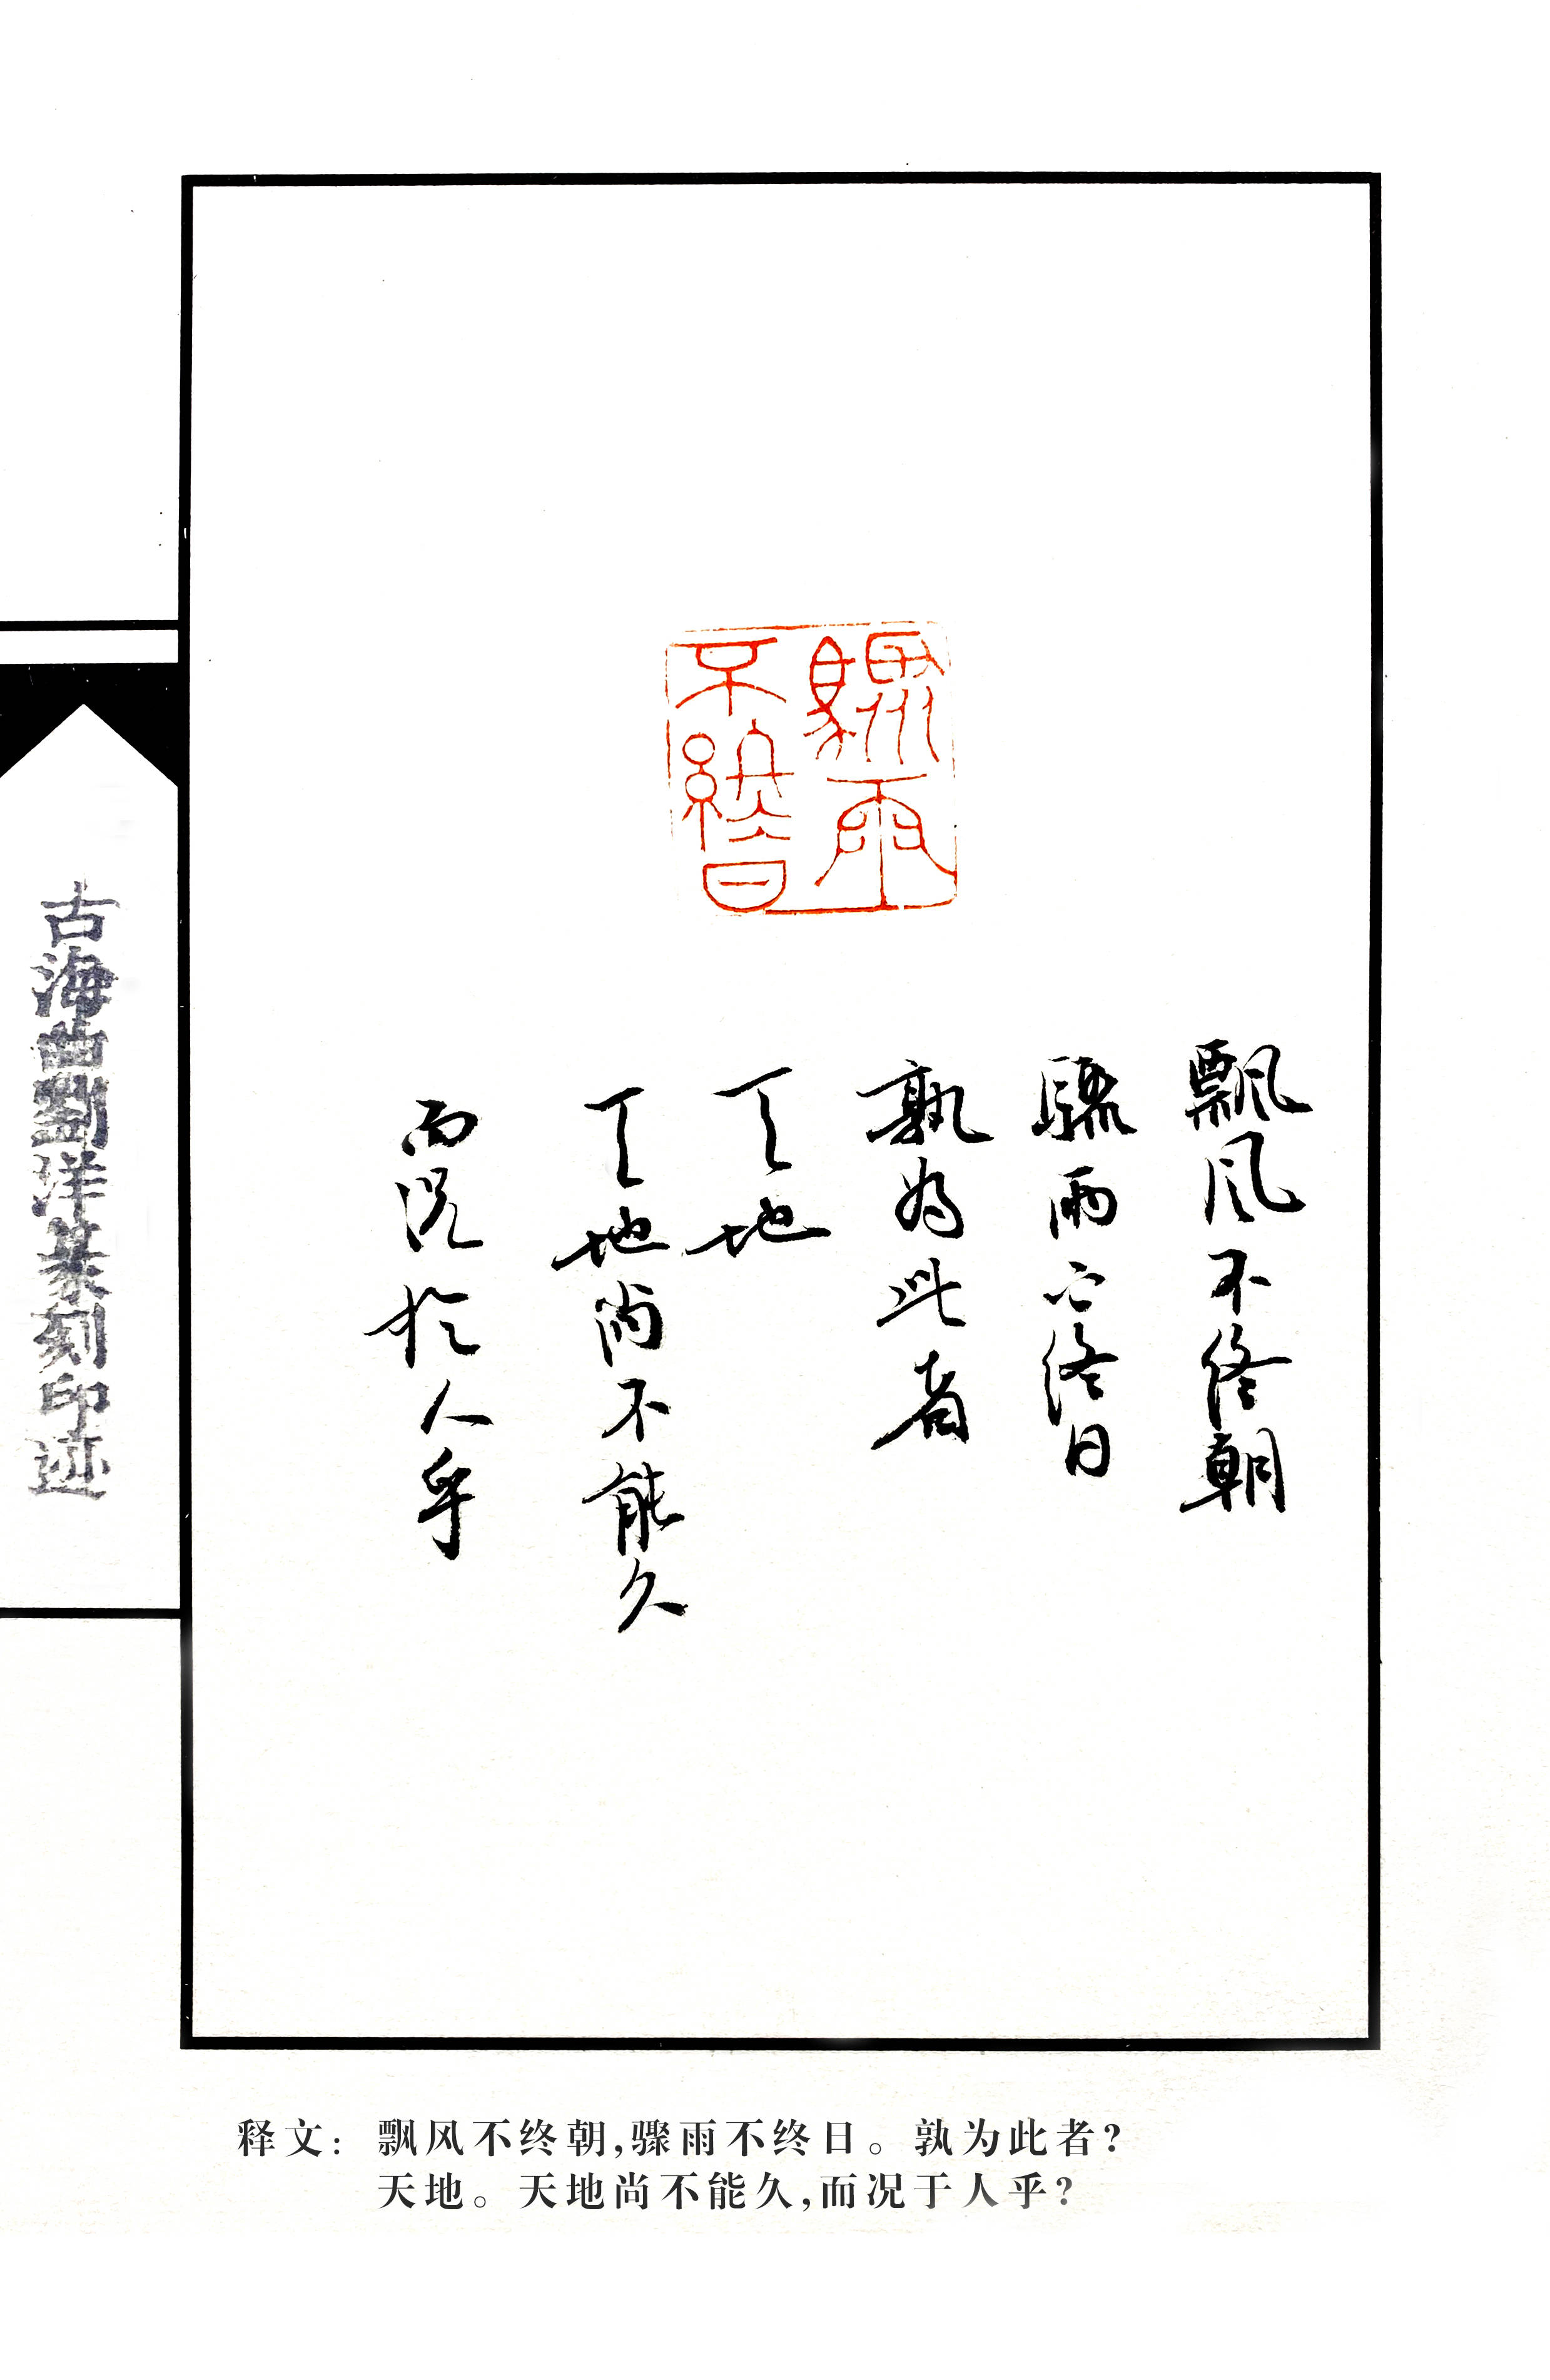 骤雨
不终日
飘风不终朝
骤雨不终日
孰为此者
天地
天地尚不能久
而况於人乎
古海曲劉洋篆刻印迹
释文：飘风不终朝,骤雨不终日。孰为此者?
天地。天地尚不能久,而况于人乎?